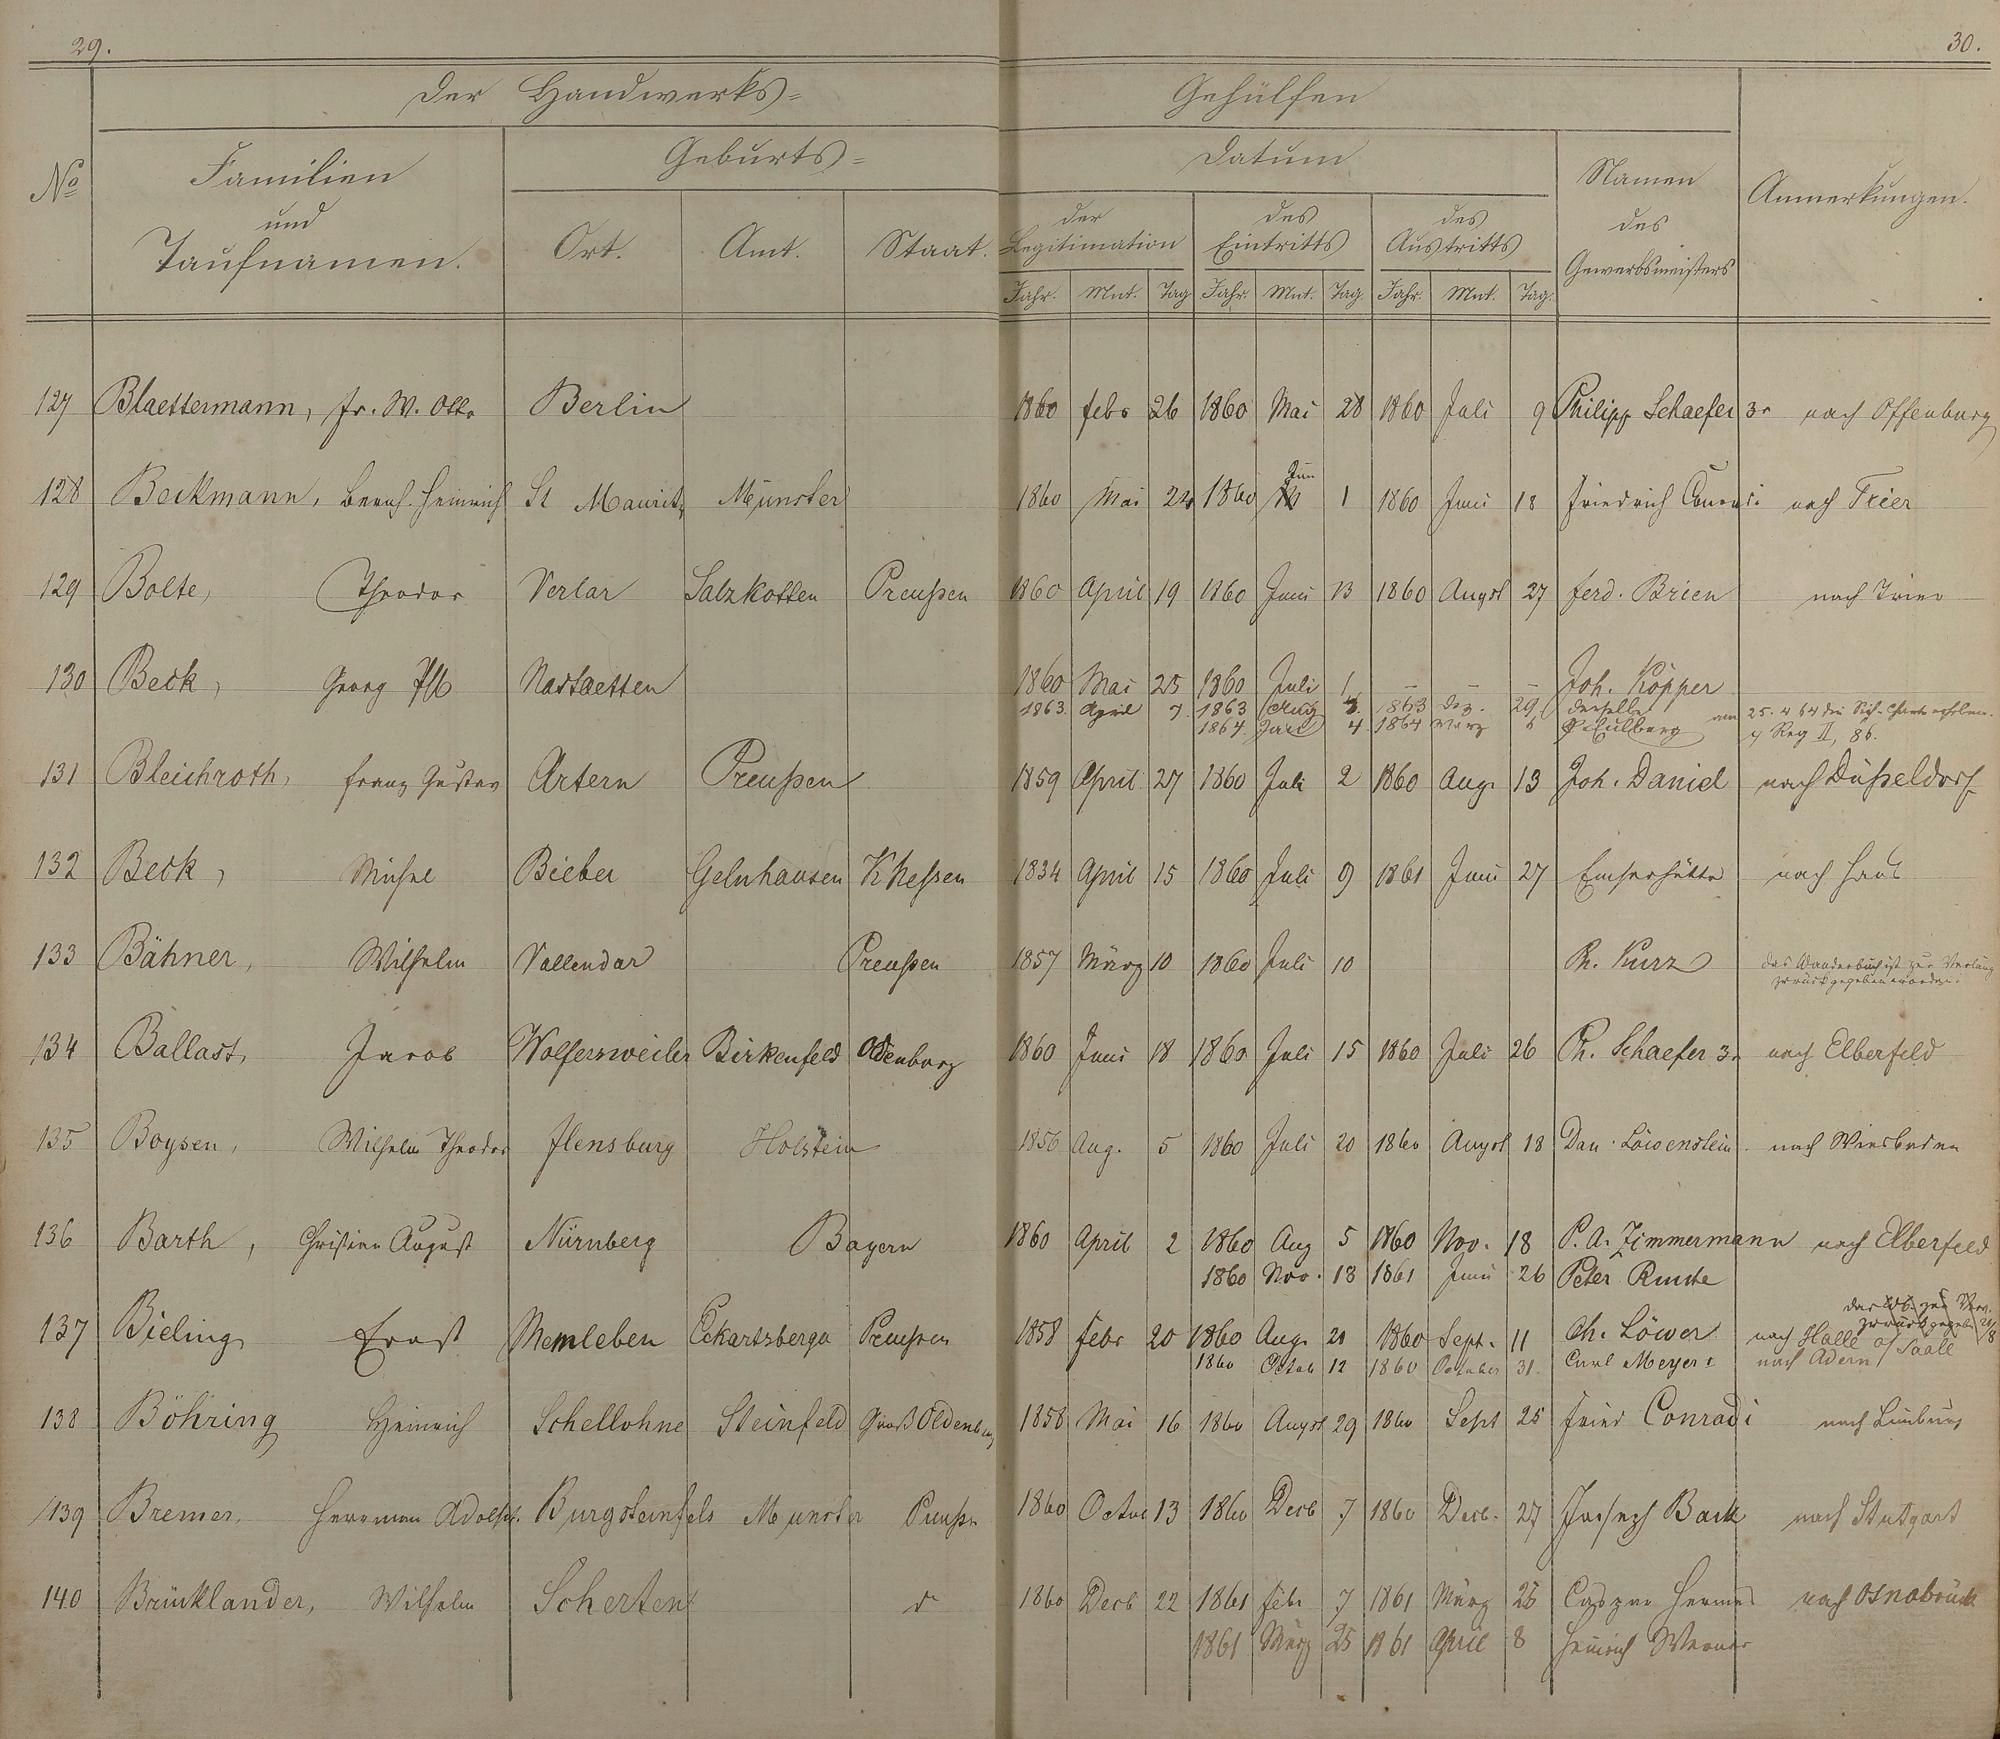 29.
30.
Der Handwerks=
Gehülfen
No
Familien
und
Taufnamen.
Geburts=
Ort.
Amt.
Staat.
Datum
der
Legitimation
des
Eintritts
des
Austritts
Jahr. Mnt. Tag Jahr. Mnt. Tag. Jahr. Mnt. Tag.
Namen
des
Gewerbsmeisters
Anmerkungen.
127 Blaettermann, Fr. W. Otto Berlin 1860 Febr 26 1860 Mai 28 1860 Juli 9 Philipp Schaefer 3r nach Offenburg
128 Beckmann, Bernh. Heinrich St Mauritz Münster 1860 Mai 24 1860 Jun 1 1860 Juni 18 Friedrich Conradi nach Trier
129 Bolte, Theodor Verlar Salzkotten Preußen 1860 April 19 1860 Juni 13 1860 Augst 27 Ferd. Brien nach Trier
130 Beck, Georg Nastaetten 1860 Mai 25 1860 Juli 1 – – – Joh. Köpper
1863. April 7. 1863 Aug 1863 Dez. 29 derselbe
1864. Juni 4. 1864 März Eulberg am 25. 4 64 die
Reg II, 86.
131 Bleichroth, Franz Gustav Artern Preußen 1859 April 27 1860 Juli 2 1860 Aug. 13 Joh. Daniel nach Düßeldorf
132 Beck, Michel Bieber Gelnhausen K Heßen 1834 April 15 1860 Juli 9 1861 Juni 27 Emserhütte nach Haus
133 Bähner, Wilhelm Vallendar Preußen 1857 März 10 1860 Juli 10 Ph. Kurz das Wanderbuch ist zur
zurückgegeben worden.
134 Ballast, Jacob Wolfersweiler Birkenfeld Oldenburg 1860 Juni 18 1860 Juli 15 1860 Juli 26 Ph. Schaefer 3r nach Elberfeld
135 Boysen, Wilhelm Theodor Flensburg Holstein 1856 Aug. 5 1860 Juli 20 1860 Augst 18 Dan. Löwenstein nach Wiesbaden
136 Barth, Christian August Nürnberg Bayern 1860 April 2 1860 Aug 5 1860 Nov. 18 P. A. Zimmermann nach Elberfeld
1860 Nov. 18 1861 Juni 26 Peter
das Wb. zur
zurückgegeben
137 Bieling Ernst Memleben Eckartsberga Preußen 1858 Febr 20 1860 Aug. 20 1860 Sept. 11 Ch. Löwer nach Halle a/ Saale
1860 Octob 12 1860 October 31. Carl Meyer nach
138 Böhring Heinrich Schellohne Steinfeld Groß Oldenburg 1858 Mai 16 1860 Augst 29 1860 Sept 25 Fried Conradi nach Limburg
139 Bremer, Herrman Adolph. Burgsteinfels Munster Preußn 1860 Octob 13 1860 Decb 7 1860 Decb. 27 Joseph Back nach Stutgart
140 Brinklander, Wilhelm Scherten 1860 Decb 22 1861 Febr 7 1861 März 25 Caspar Hermes nach Osnabrück
1861 März 25 1861 April 8 Heinrich Werner